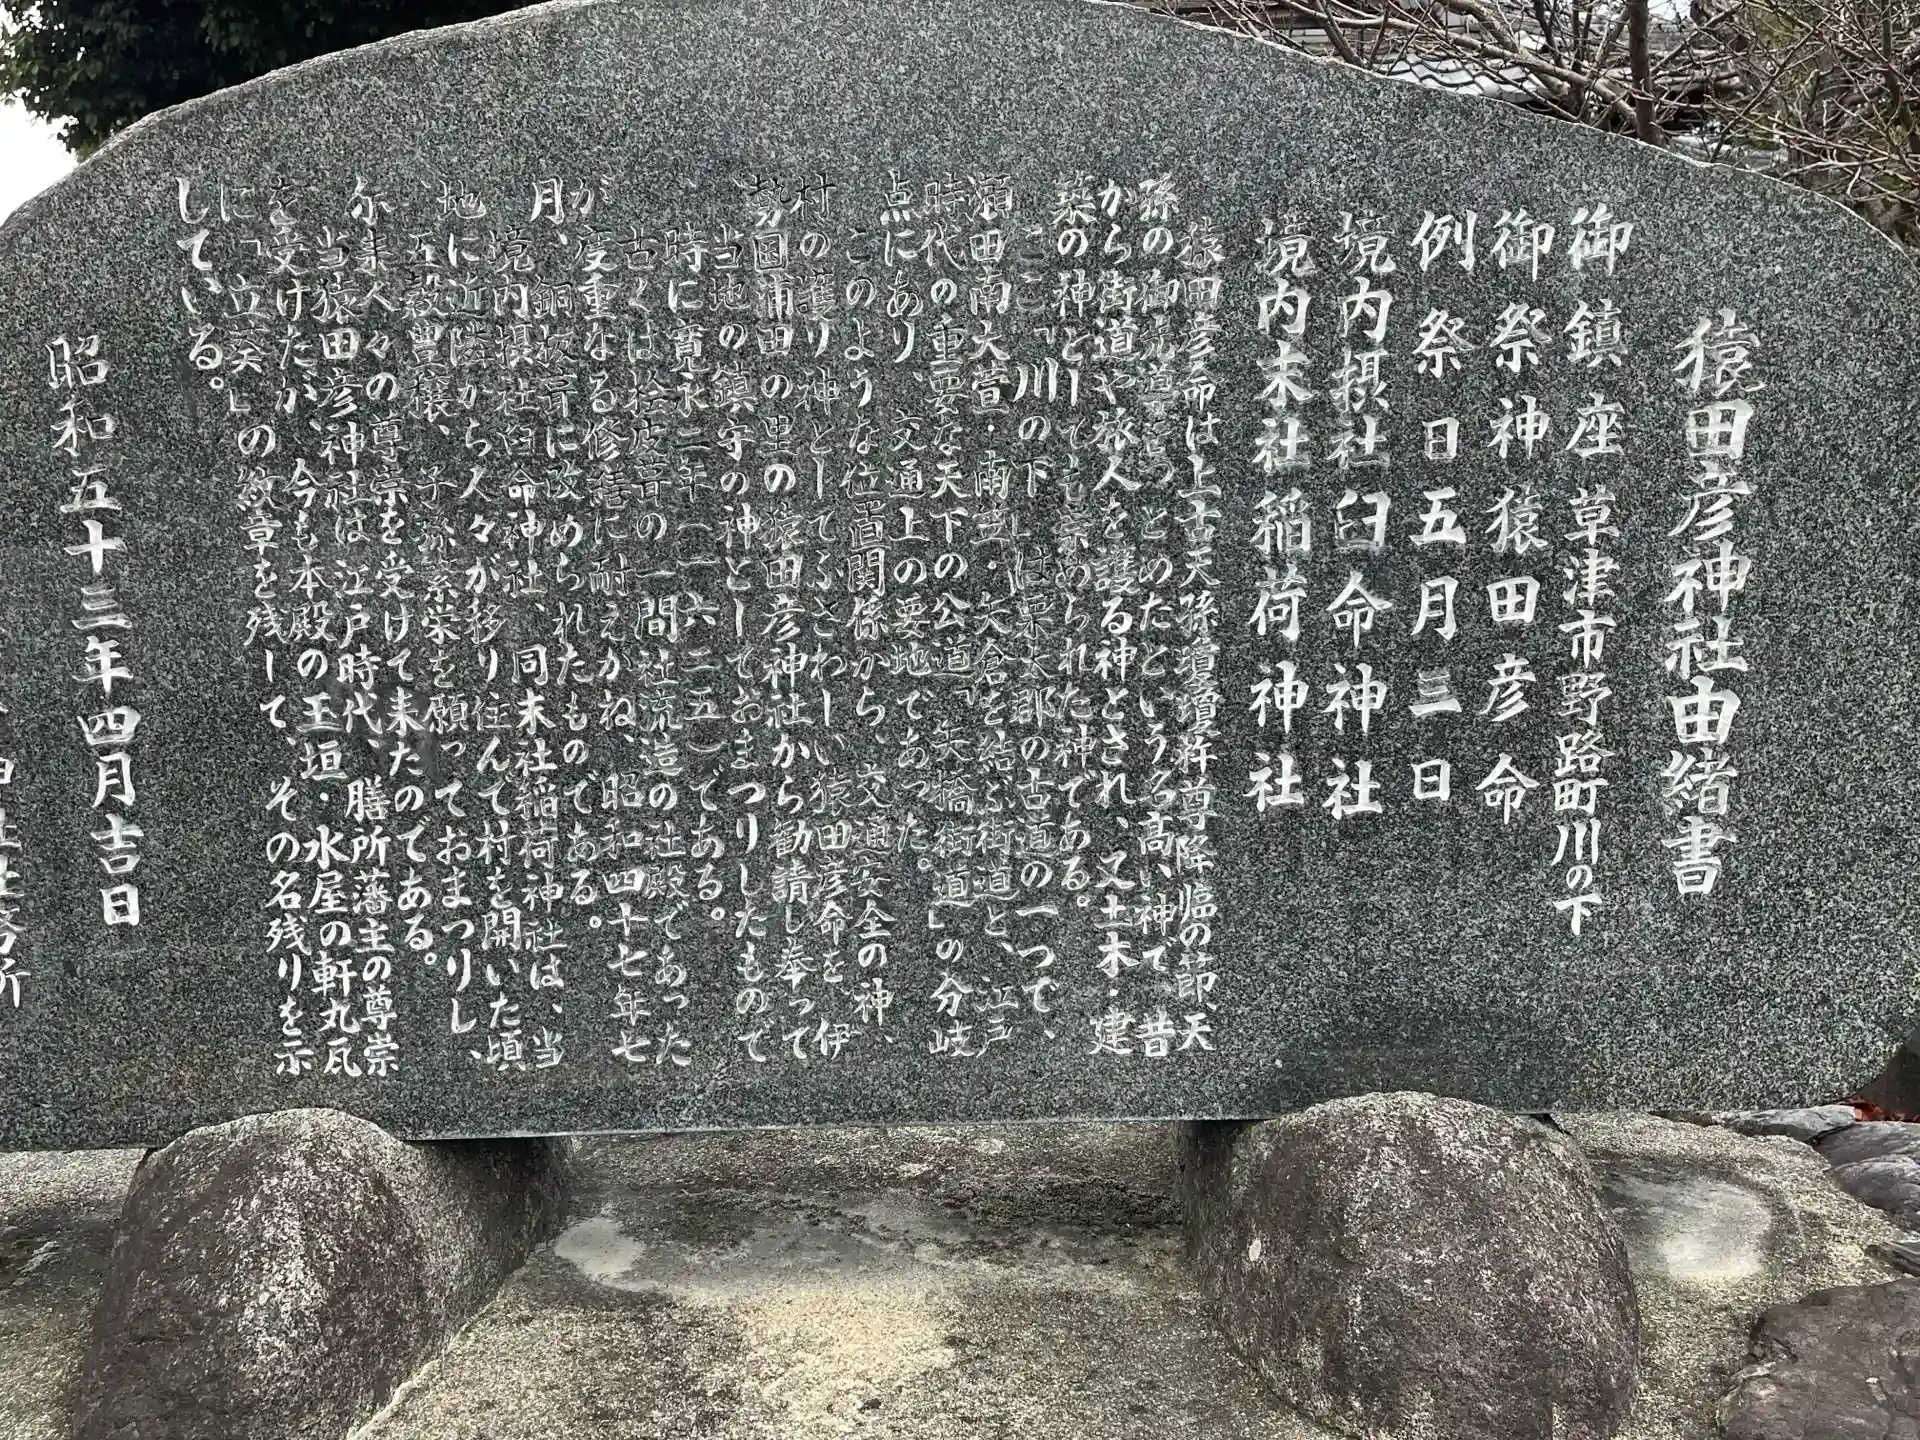 猿田彦神社由緒書
御鎮座 草津市野路町川の下
御祭神 猿田彦命
例祭日 五月三日
境内摂社 臼命神社
境内末社 稲荷神社
猿田彦命は上古天孫瓊瓊杵尊降臨の節、天
孫の御先導をつとめたという名高い神で、昔
から街道や旅人を護る神とされ、又土木・建
築の神としても崇められた神である。
ここ「川の下」は栗太郡の古道の一つで、
瀬田南大萱・南笠・矢倉を結ぶ街道と、江戸
時代の重要な天下の公道「矢橋街道」の分岐
点にあり、交通上の要地であった。
このような位置関係から、交通安全の神、
村の護り神としてふさわしい猿田彦命を、伊
勢国浦田の里の猿田彦神社から勧請し奉って
、当地の鎮守の神としておまつりしたもので
、時に寛永二年(一六二五)である。
古くは桧皮葺の一間社流造の社殿であった
が度重なる修繕に耐えかね、昭和四十七年七
月、銅板葺に改められたものである。
境内摂社臼命神社、同末社稲荷神社は、当
地に近隣から人々が移り住んで村を開いた頃
、五穀豊穣、子孫繁栄を願っておまつりし、
尓来人々の尊崇を受けて来たのである。
当猿田彦神社は江戸時代、膳所藩主の尊崇
を受けたが、今も本殿の玉垣・水屋の軒丸瓦
に「立葵」の紋章を残して、その名残りを示
している。
昭和五十三年四月吉日